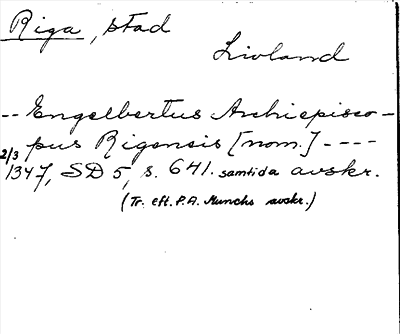 Riga, stad
Livland
-- Engelbertus Archiepisco-
pus Rigensis [nom.] ----
2/3 1347, SD 5, s. 641. samtida avskr.
(Tr. eft. P.A. Munchs avskr.)